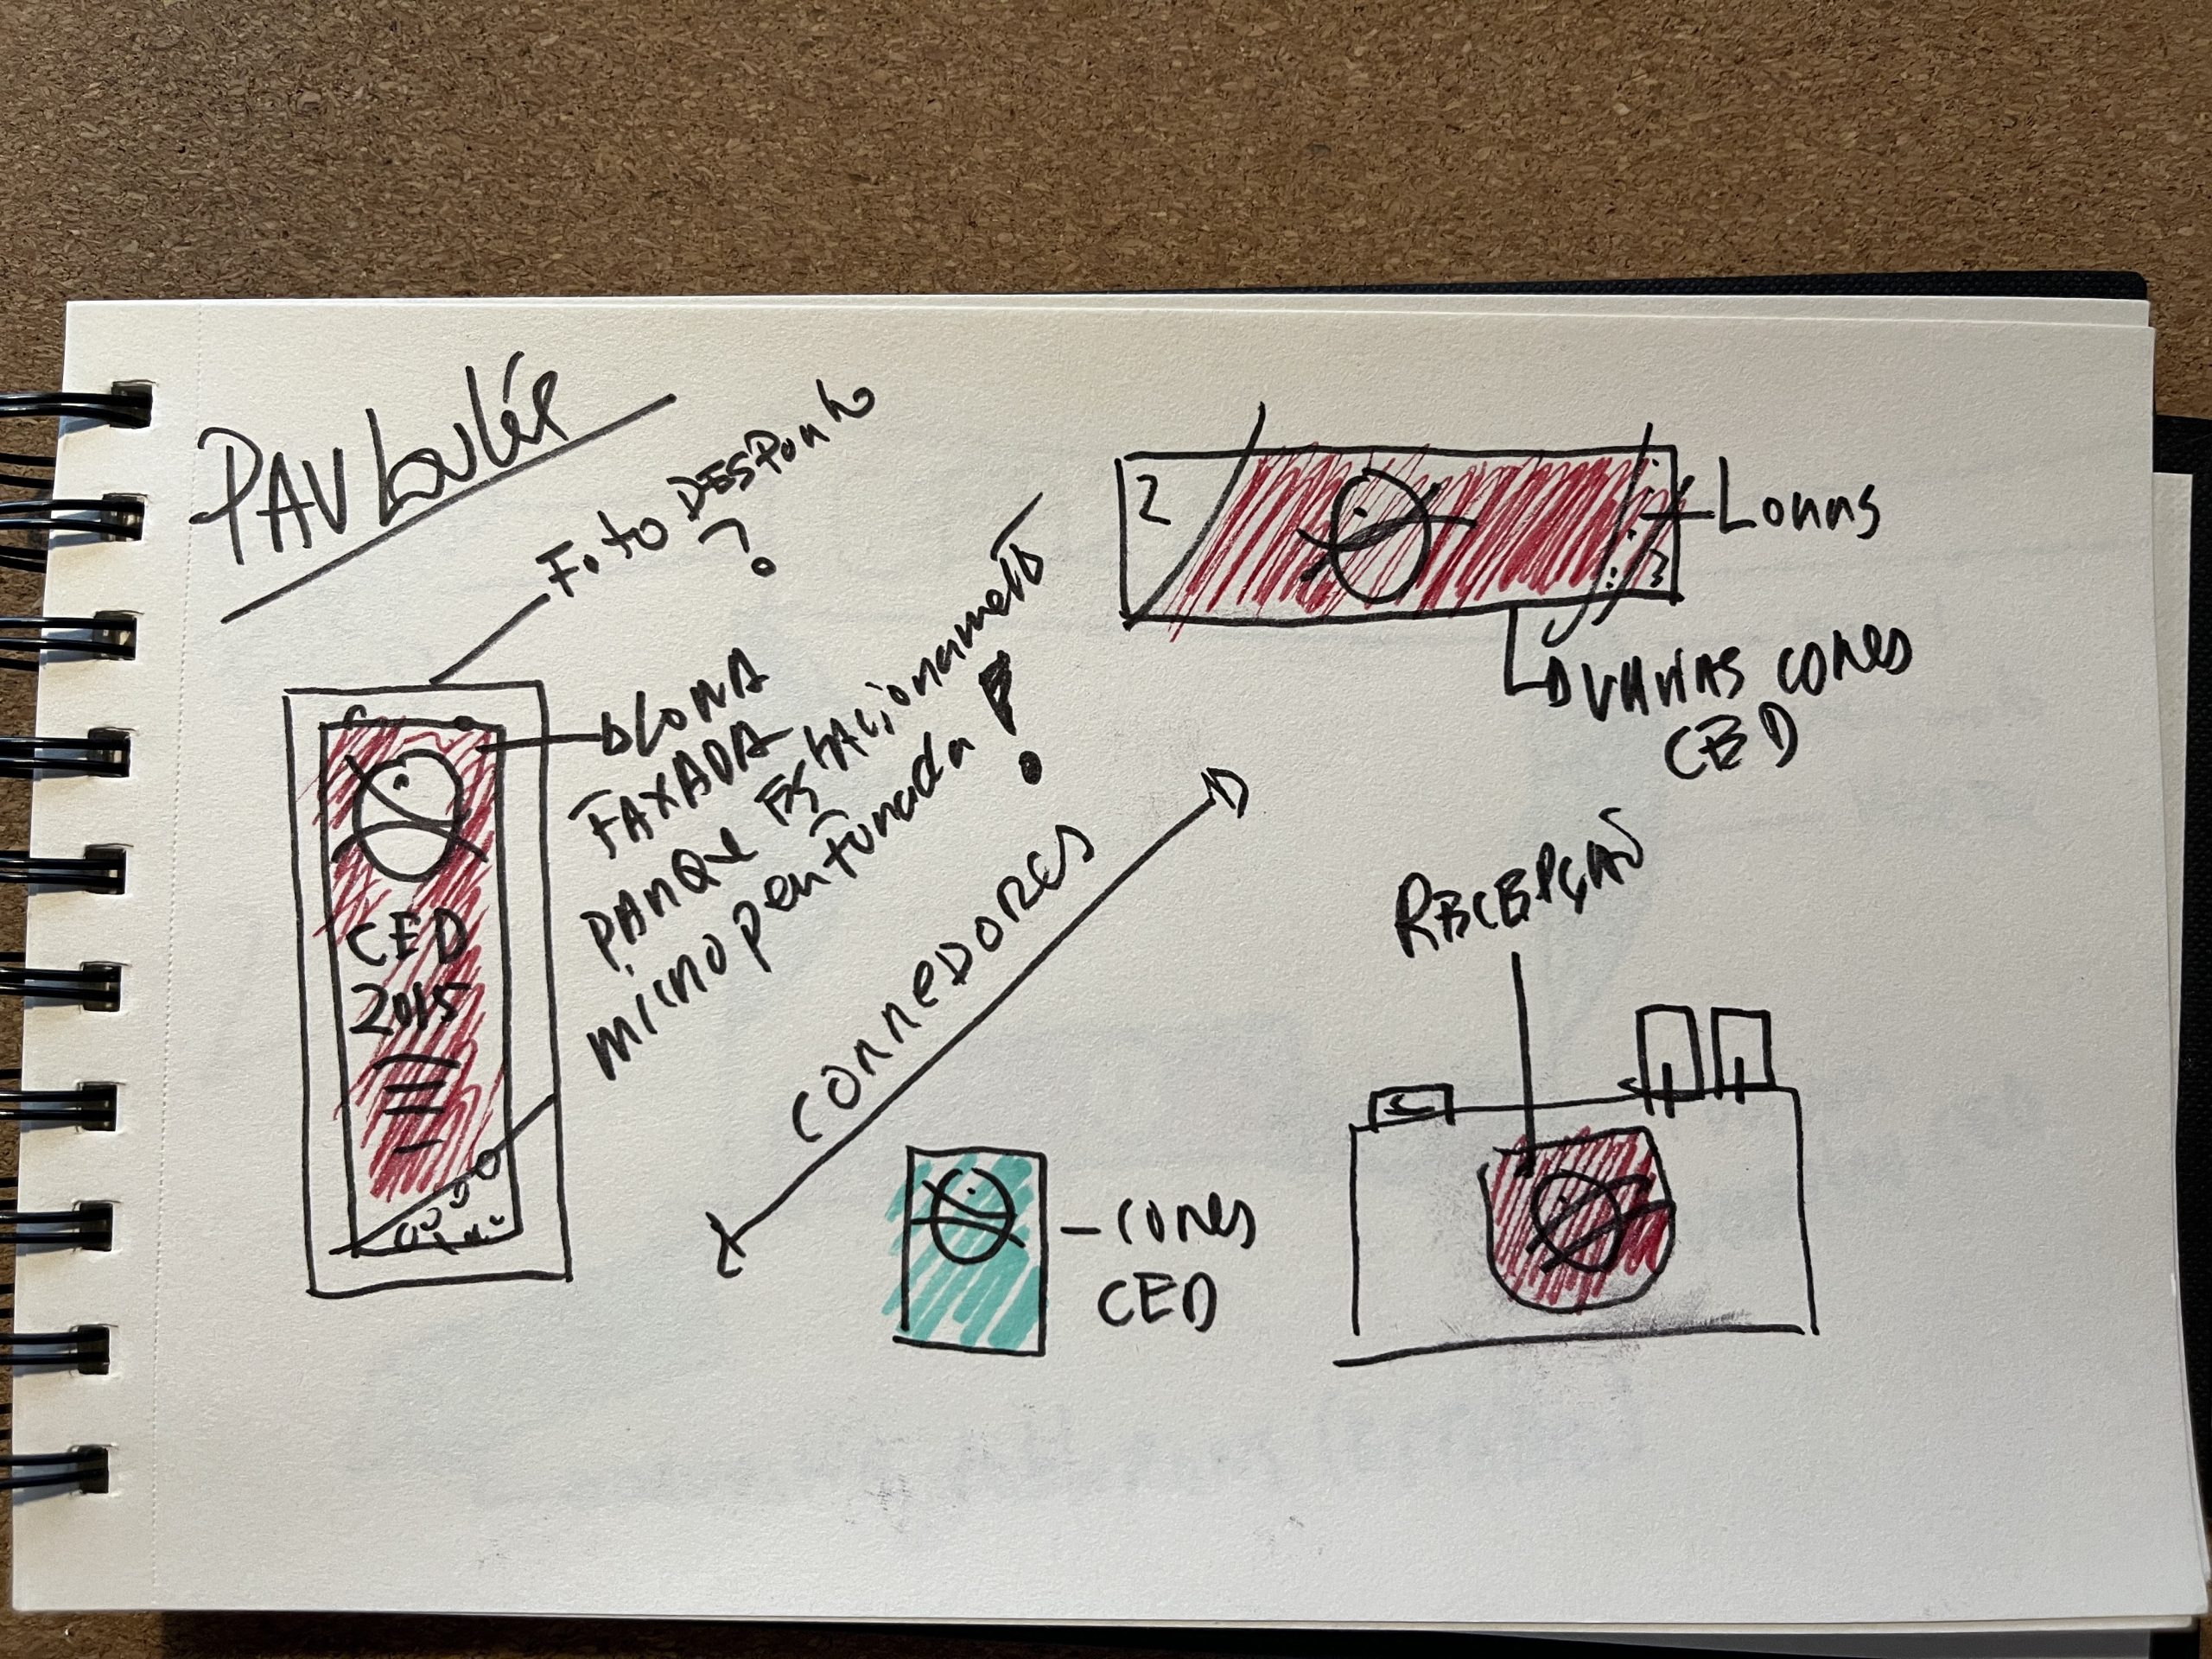 PAV Loulé
Foto DESPORTO
?
LONA
FAXADA
PARQUE ESTACIONAMETO
micro perfurada ?
CED
2015
CORREDORES
2
Lonas
VÁRIAS CORES
CED
RECEPÇÃO
- CORES
CED